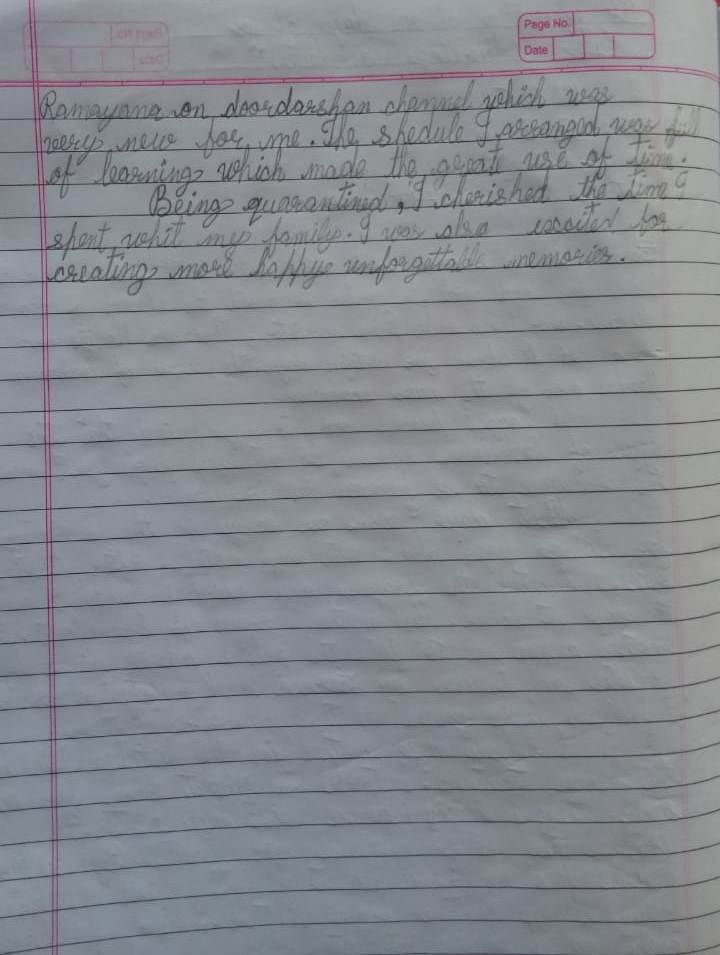 Page No.
Date
Ramayana on doordarshan channel which was
very new for me. The shedule I arranged was full
of learning which made the great use of time.
Being quarantined, I cherished the time I
spent whit my family. I was also excited for
creating more happy unforgettable memories.